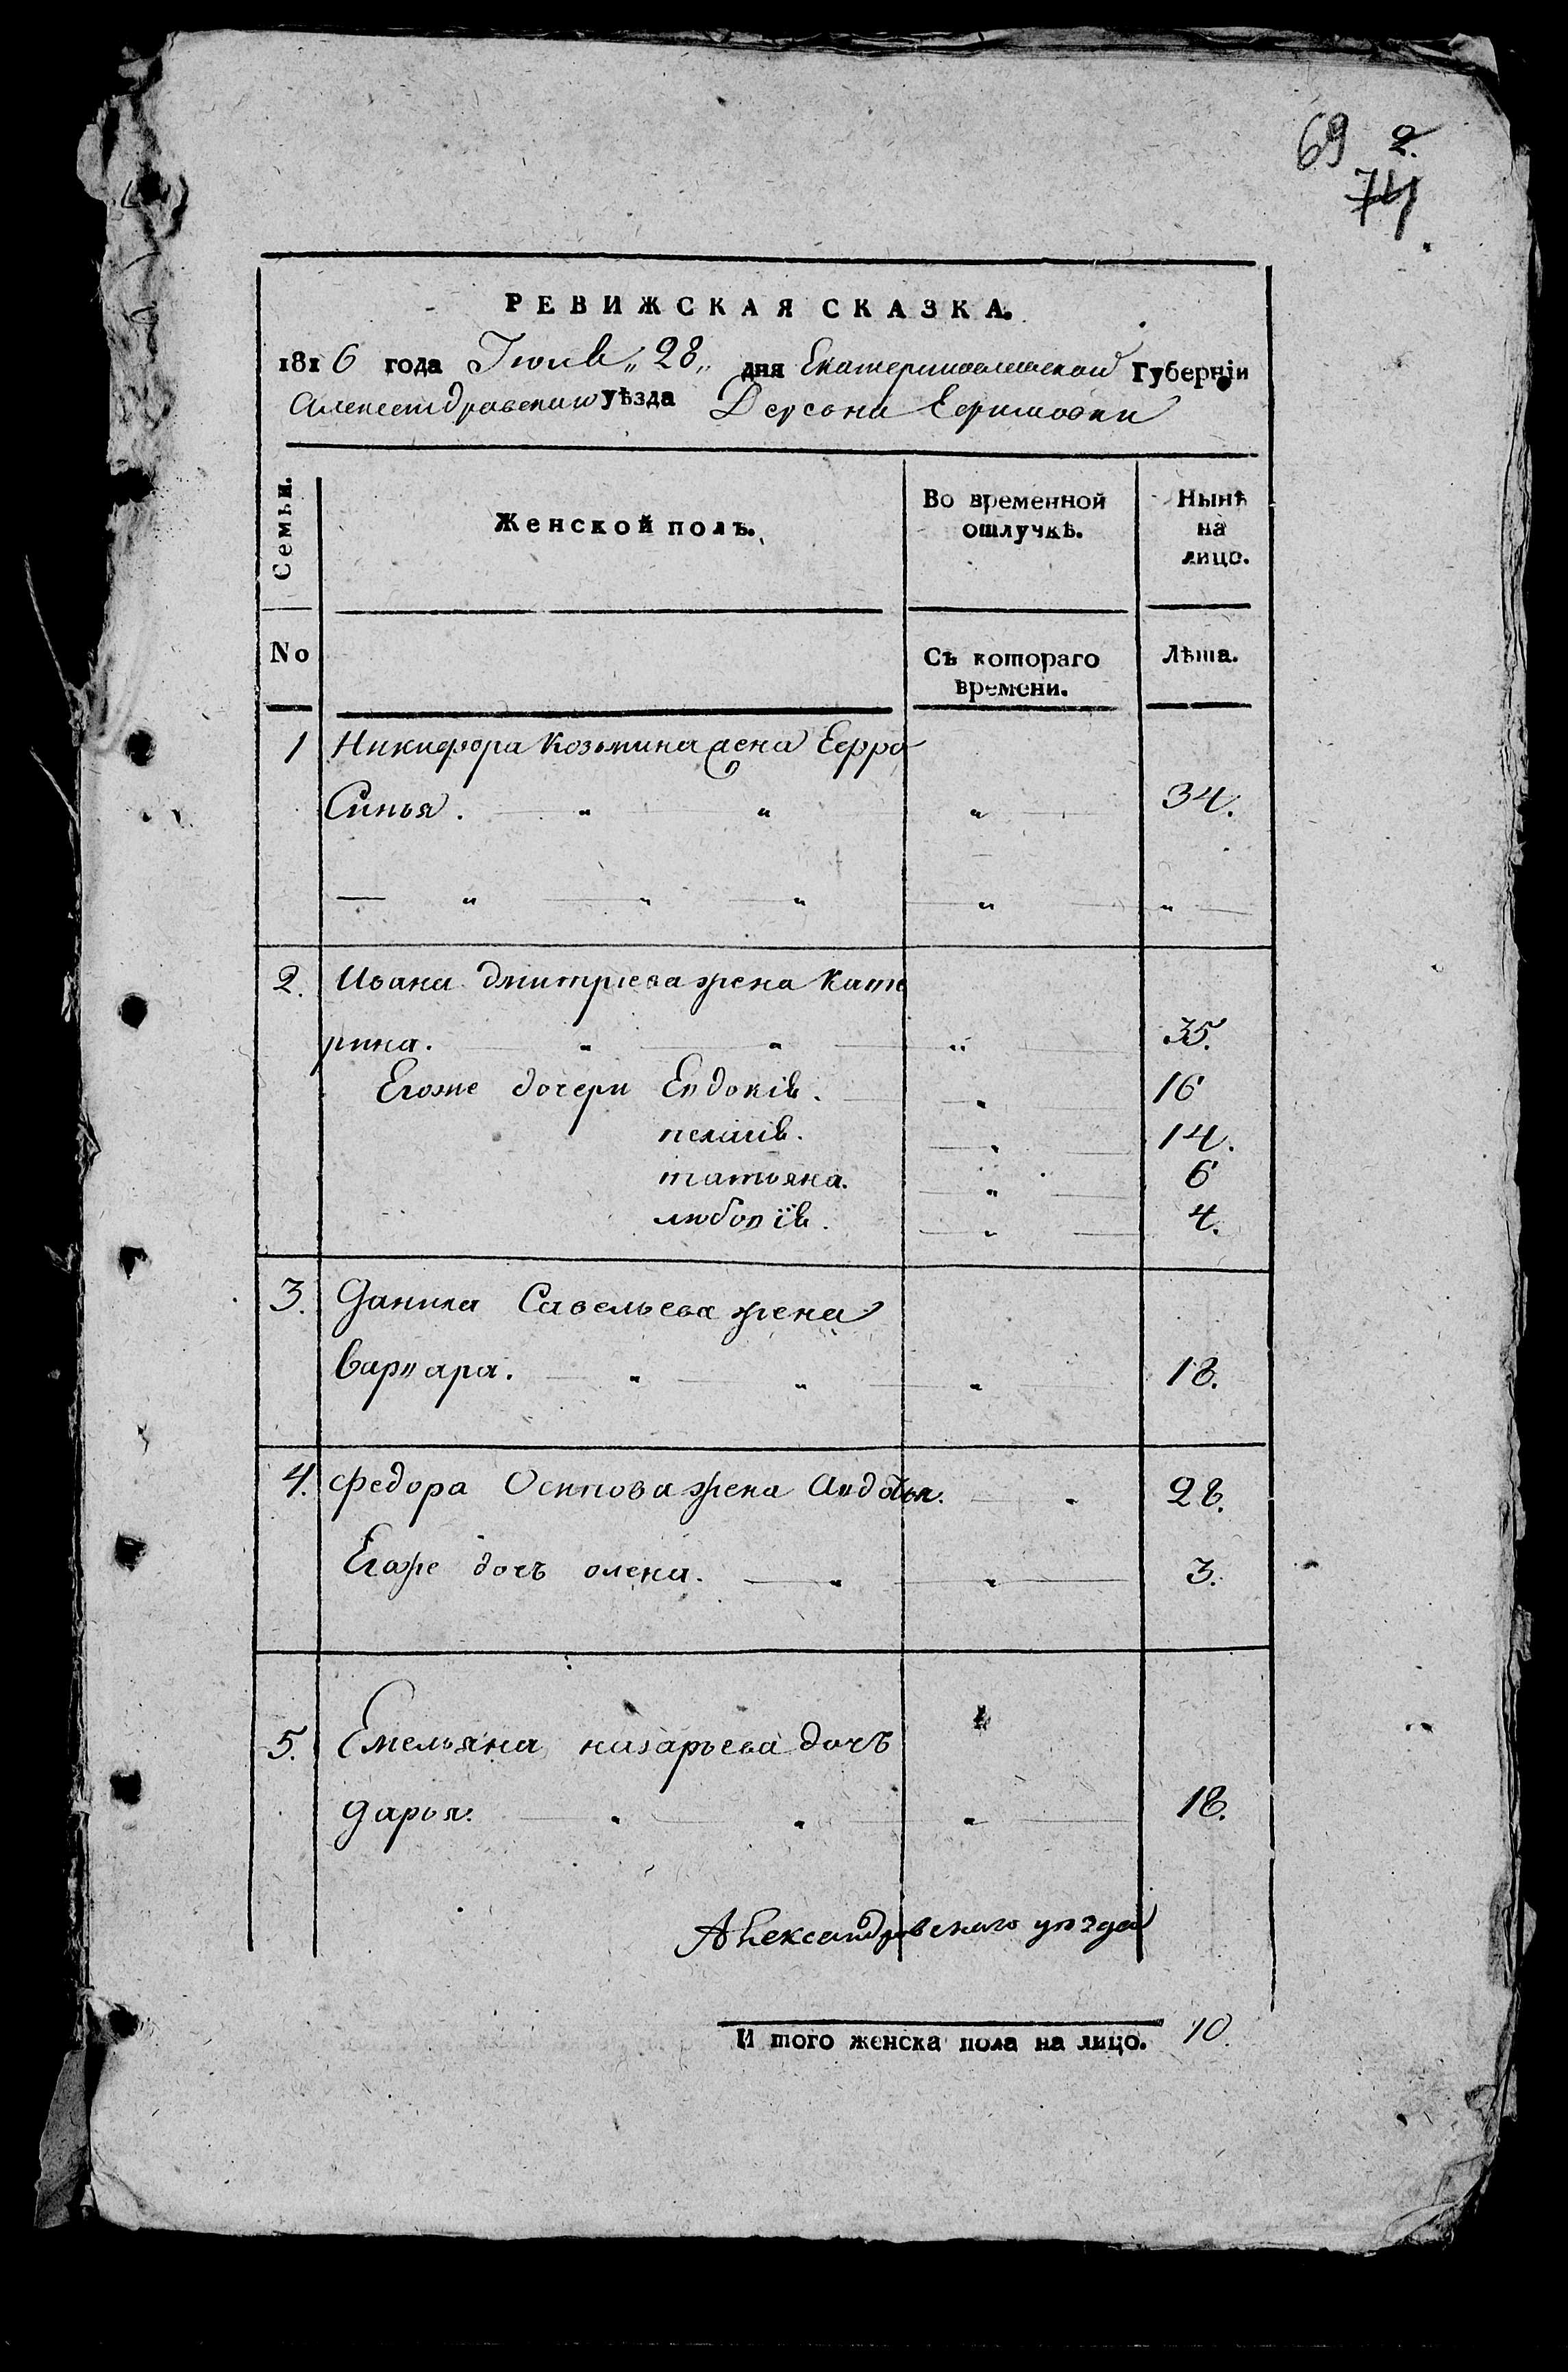 69 2.
74
РЕВИЖСКАЯ СКАЗКА.
1816 года Іюлѣ „28„ дня Екатеринославской Губерніи
Александровскаго уѣзда
Семьи. Женской полъ. Во временной отлучкѣ. Нынѣ на лицо.
No Съ котораго времени. Лѣта.
1 Никифора Козьмина жена Евро
Синья. 34.
2. Ивана дмитриева жена Кате
рина. 35.
Егоже дочери Евдокіѣ. 16
пелагіѣ. 14.
татьяна. 6
любовіѣ. 4.
3. Данила Савельева жена
варвара. 18.
4. Федора Осипова жена Авдотья. 28.
Егоже дочъ олена. 3.
5. Емельяна назарьева дочъ
дарья. 18.
Александровскаго уѣзда
И того женска пола на лицо. 10.